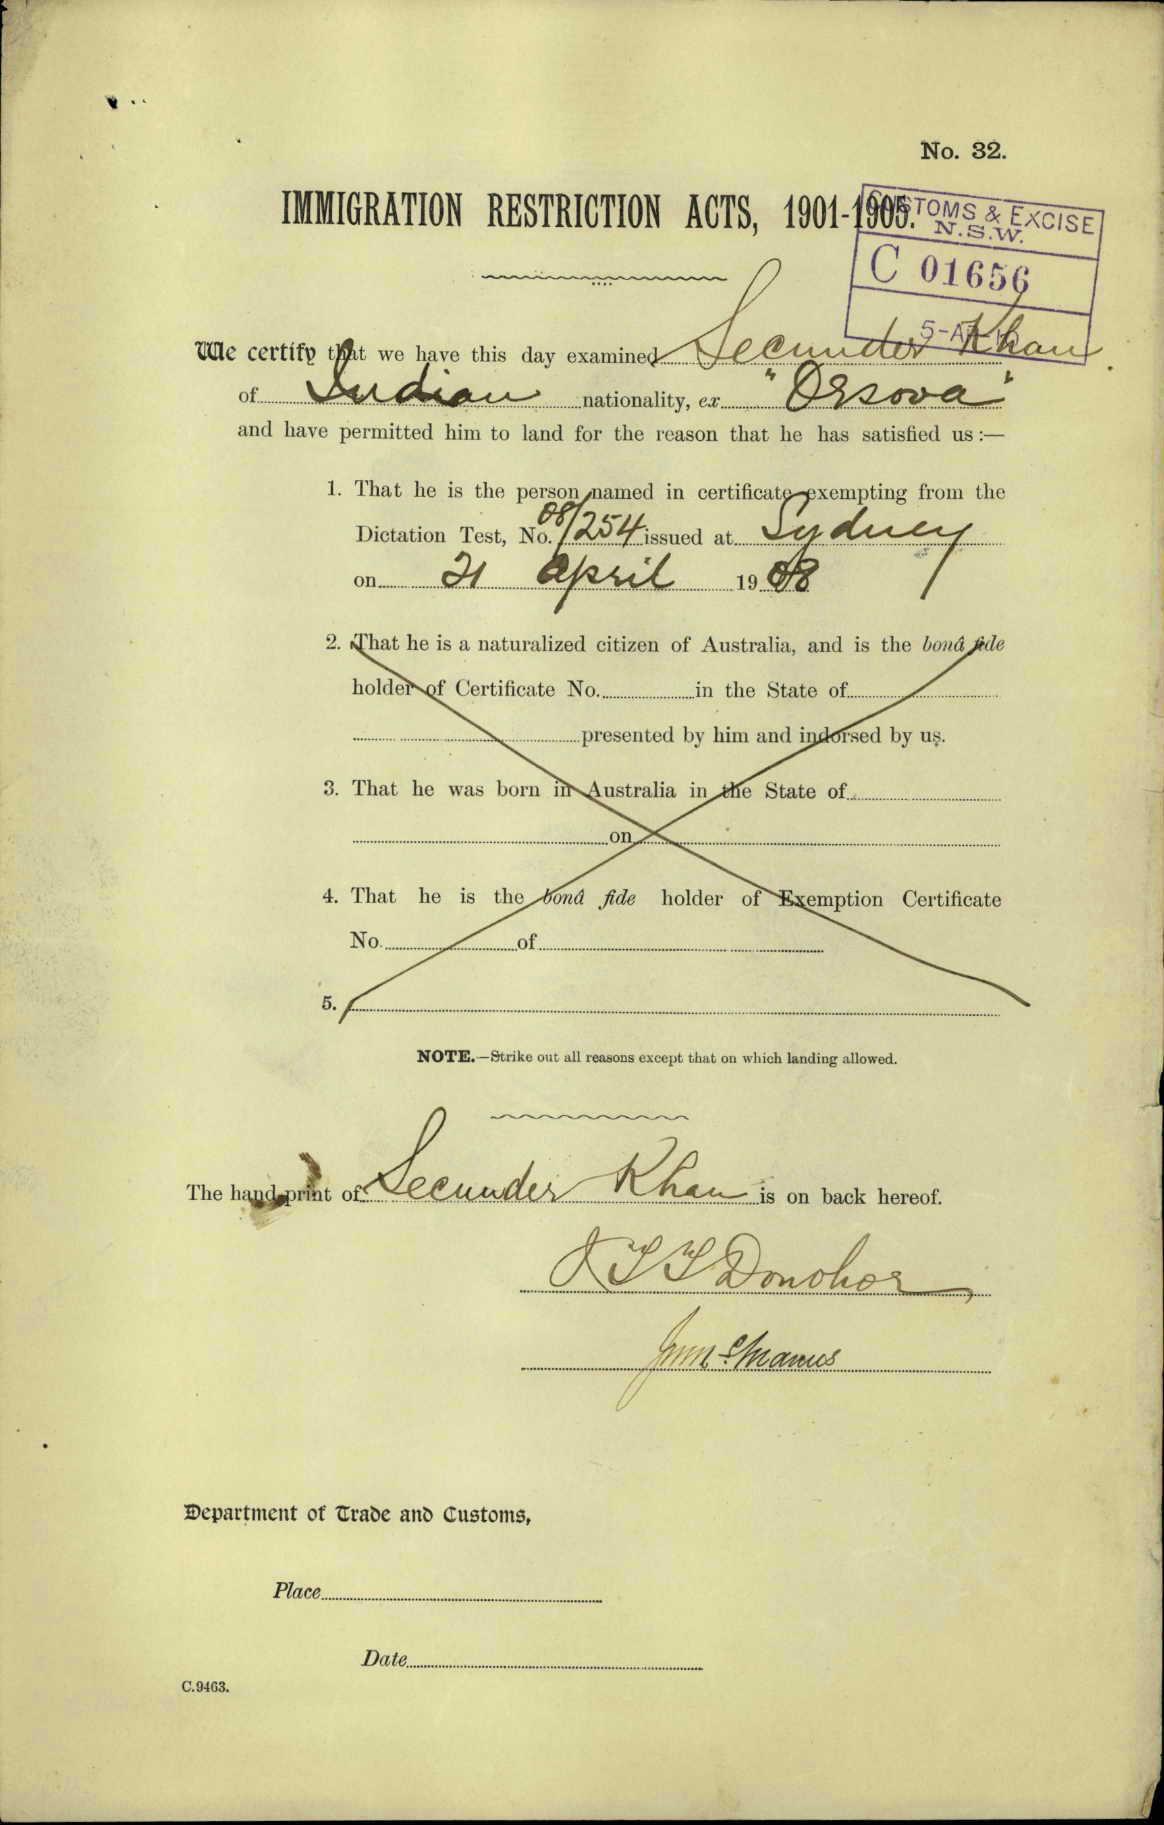 No. 32.
IMMIGRATION RESTRICTION ACTS, 1901-1905.
CUSTOMS & EXCISE
N.S.W.
C 01656
We certify that we have this day examined Secunder Khan
of Indian nationality, ex "Orsova"
and have permitted him to land for the reason that he has satisfied us:—
1. That he is the person named in certificate exempting from the
Dictation Test, No. 08/254 issued at Sydney
on 21 April 1908
2. That he is a naturalized citizen of Australia, and is the bonâ fide
holder of Certificate No. in the State of
presented by him and indorsed by us.
3. That he was born in Australia in the State of
on
4. That he is the bonâ fide holder of Exemption Certificate
No. of
5.
NOTE.—Strike out all reasons except that on which landing allowed.
The hand print of Secunder Khan is on back hereof.
Donohoe
McManus
Department of Trade and Customs,
Place
Date
C.9463.